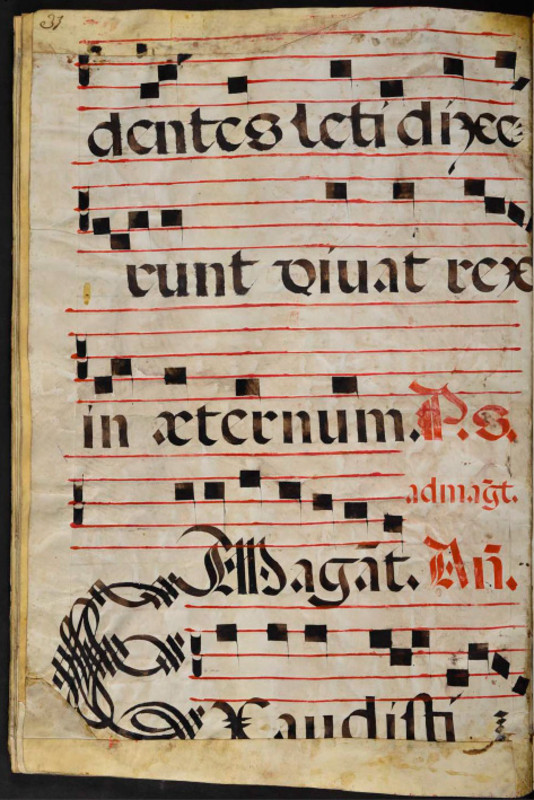 31
dentes leti dixe⸗
runt viuat rex
in æternum. P.s.
admag̃t.
Magãt. Añ.
EXaudisti